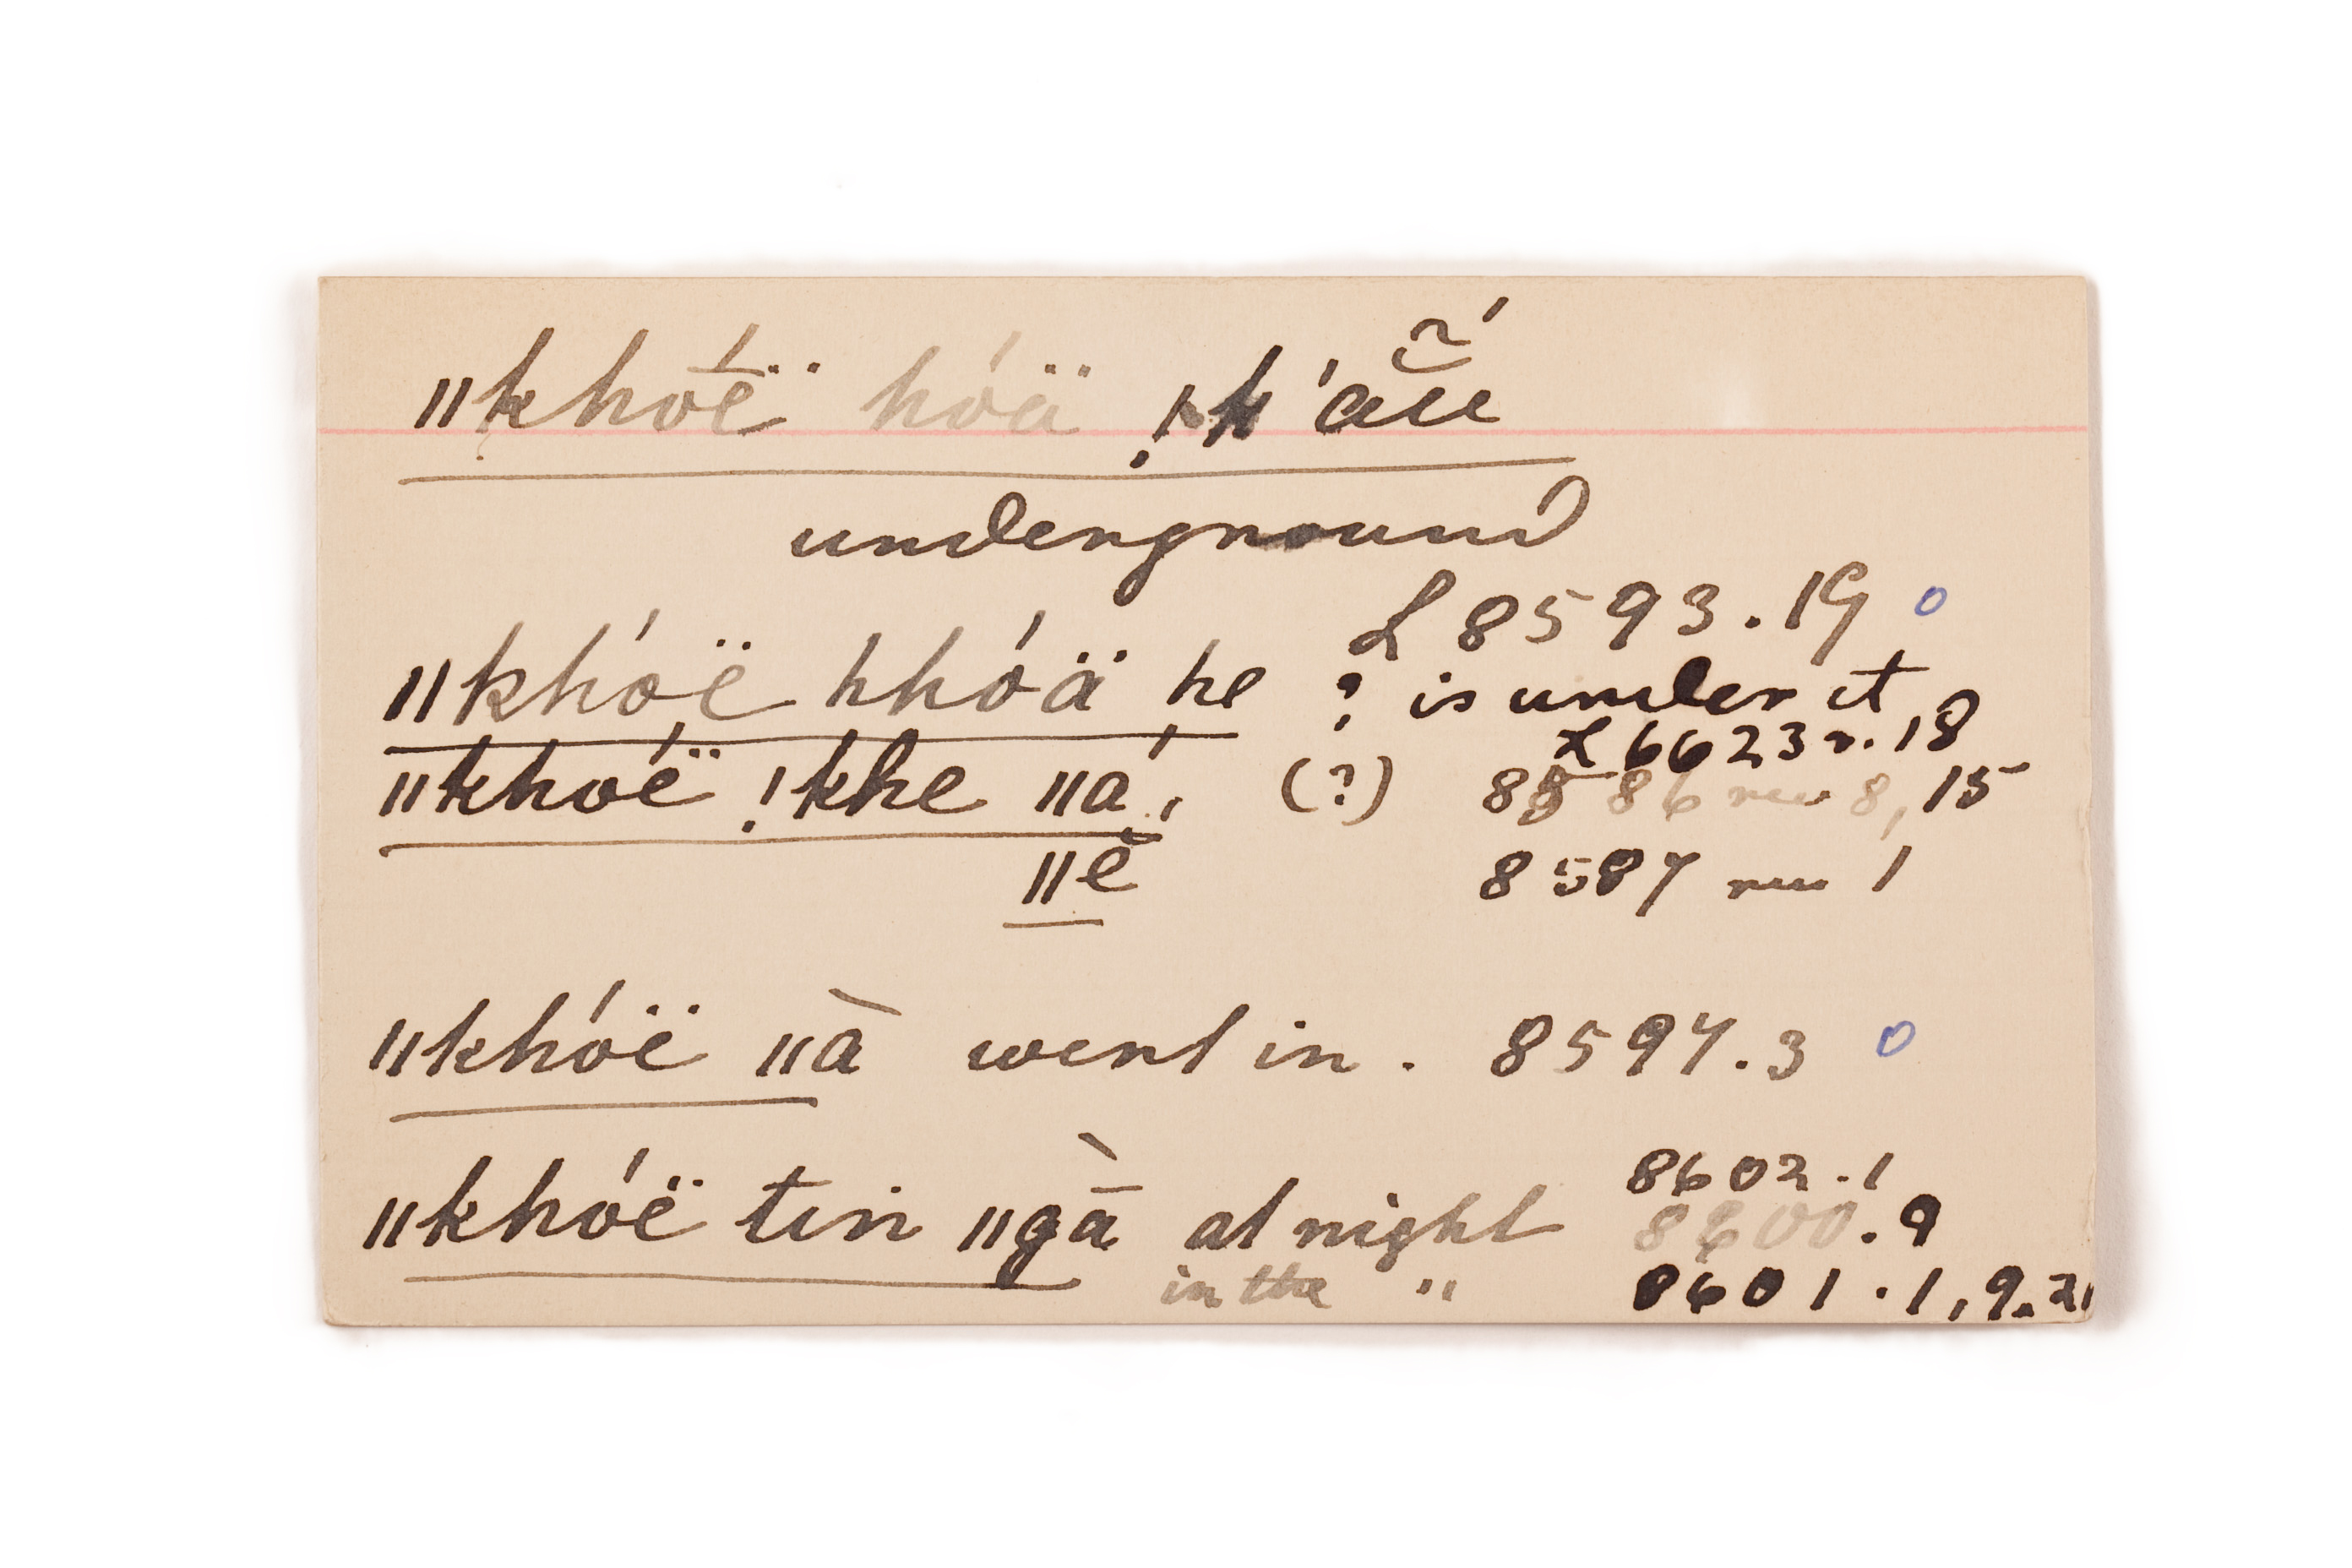 ǁkhoḗ̈ hóä !k'aŭ̃́
underground
L 8593.19 o
ǁkhóë hhóä he ? is under it
L 6623 r. 18
ǁkhoé̈ !khe ǁá, (?) 8586 rev 8, 15
ǁĕ 8587 rev 1
ǁkhóë ǁà went in . 8597.3 o
8602.1
ǁkhóë tin ǁgā̀ at night 8600.9
in the " 8601.1,9.21